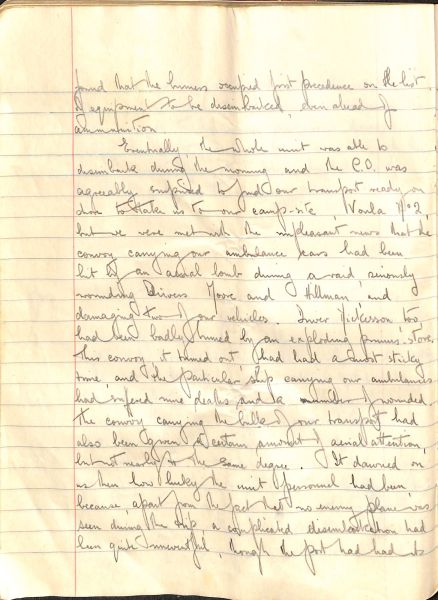 found that the burners occupied first precedence on the list
of equipment to be disembarked, even ahead of
ammunition.
Eventually, the whole unit was able to
disembark during the morning and the C.O. was
agreeably surprised to find our transport ready on
shore to take us to our camp-site, Voula Nº 2,
but we were met with the unpleasant news that the
convoy carrying our ambulance cars had been
hit by an aerial bomb during a raid, seriously
wounding Drivers Moore and Hillman, and
damaging two of our vehicles. Driver Nickerson too
had been badly burned by an exploding primus-stove.
This convoy, it turned out, had had a most sticky
time, and the particular ship carrying our ambulances
had suffered nine deaths and a number of wounded.
The convoy carrying the bulk of our transport had
also been given a certain amount of aerial attention,
but not nearly to the same degree. It dawned on
us then how lucky the unit personnel had been,
because apart from the fact that no enemy plane was
seen during the trip a complicated disembarkation had
been quite uneventful, though the port had had its